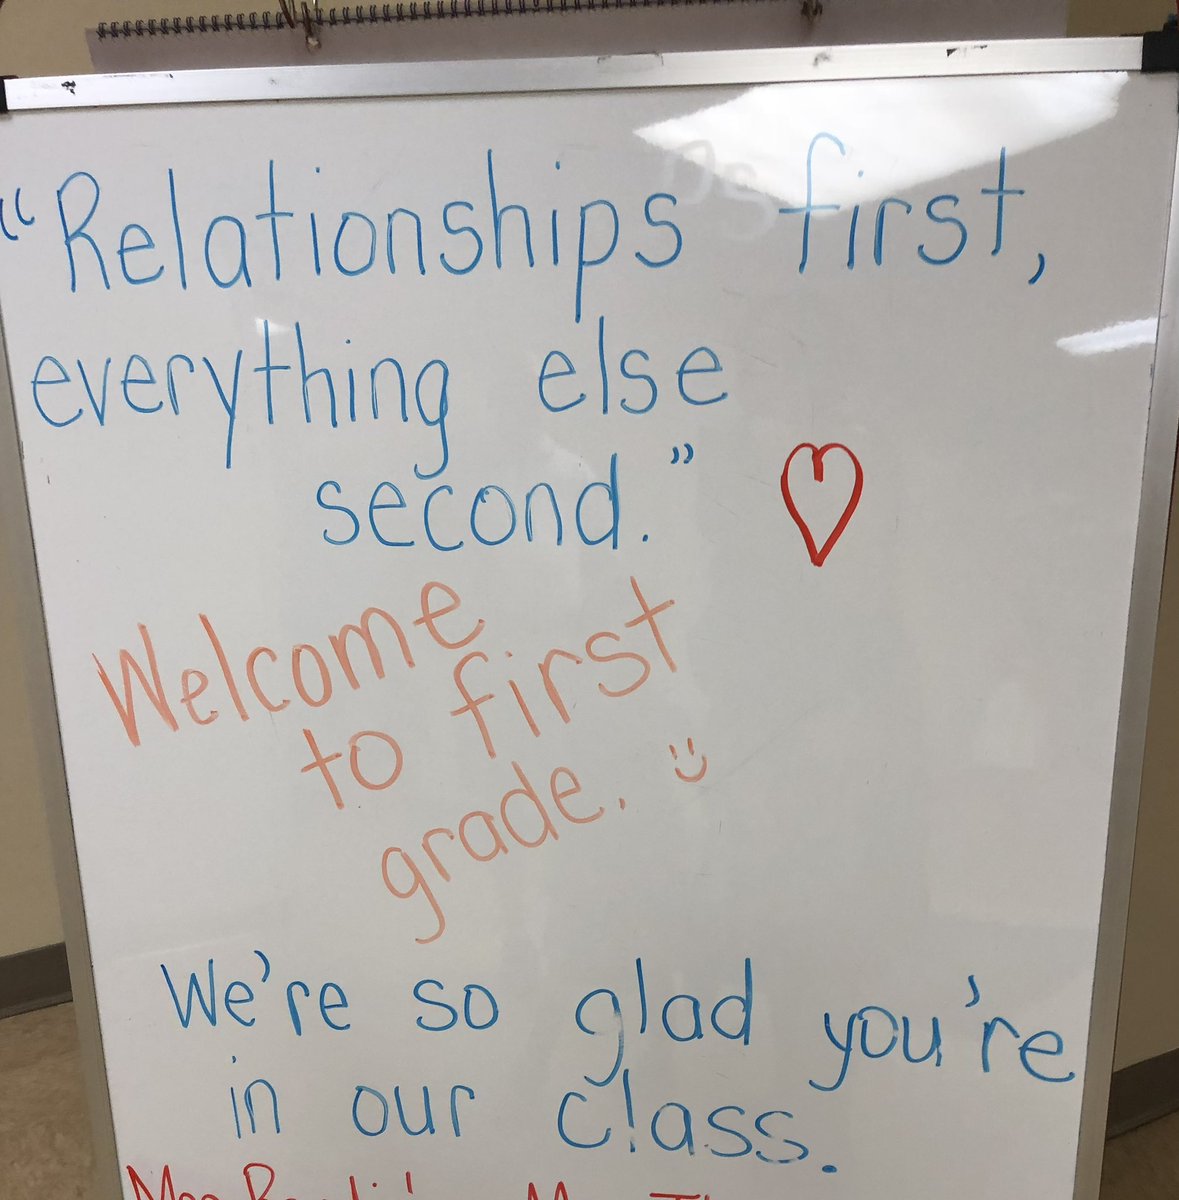 “Relationships first,
everything else
second.”
Welcome
to first
grade.
We're so glad you're
in our class.